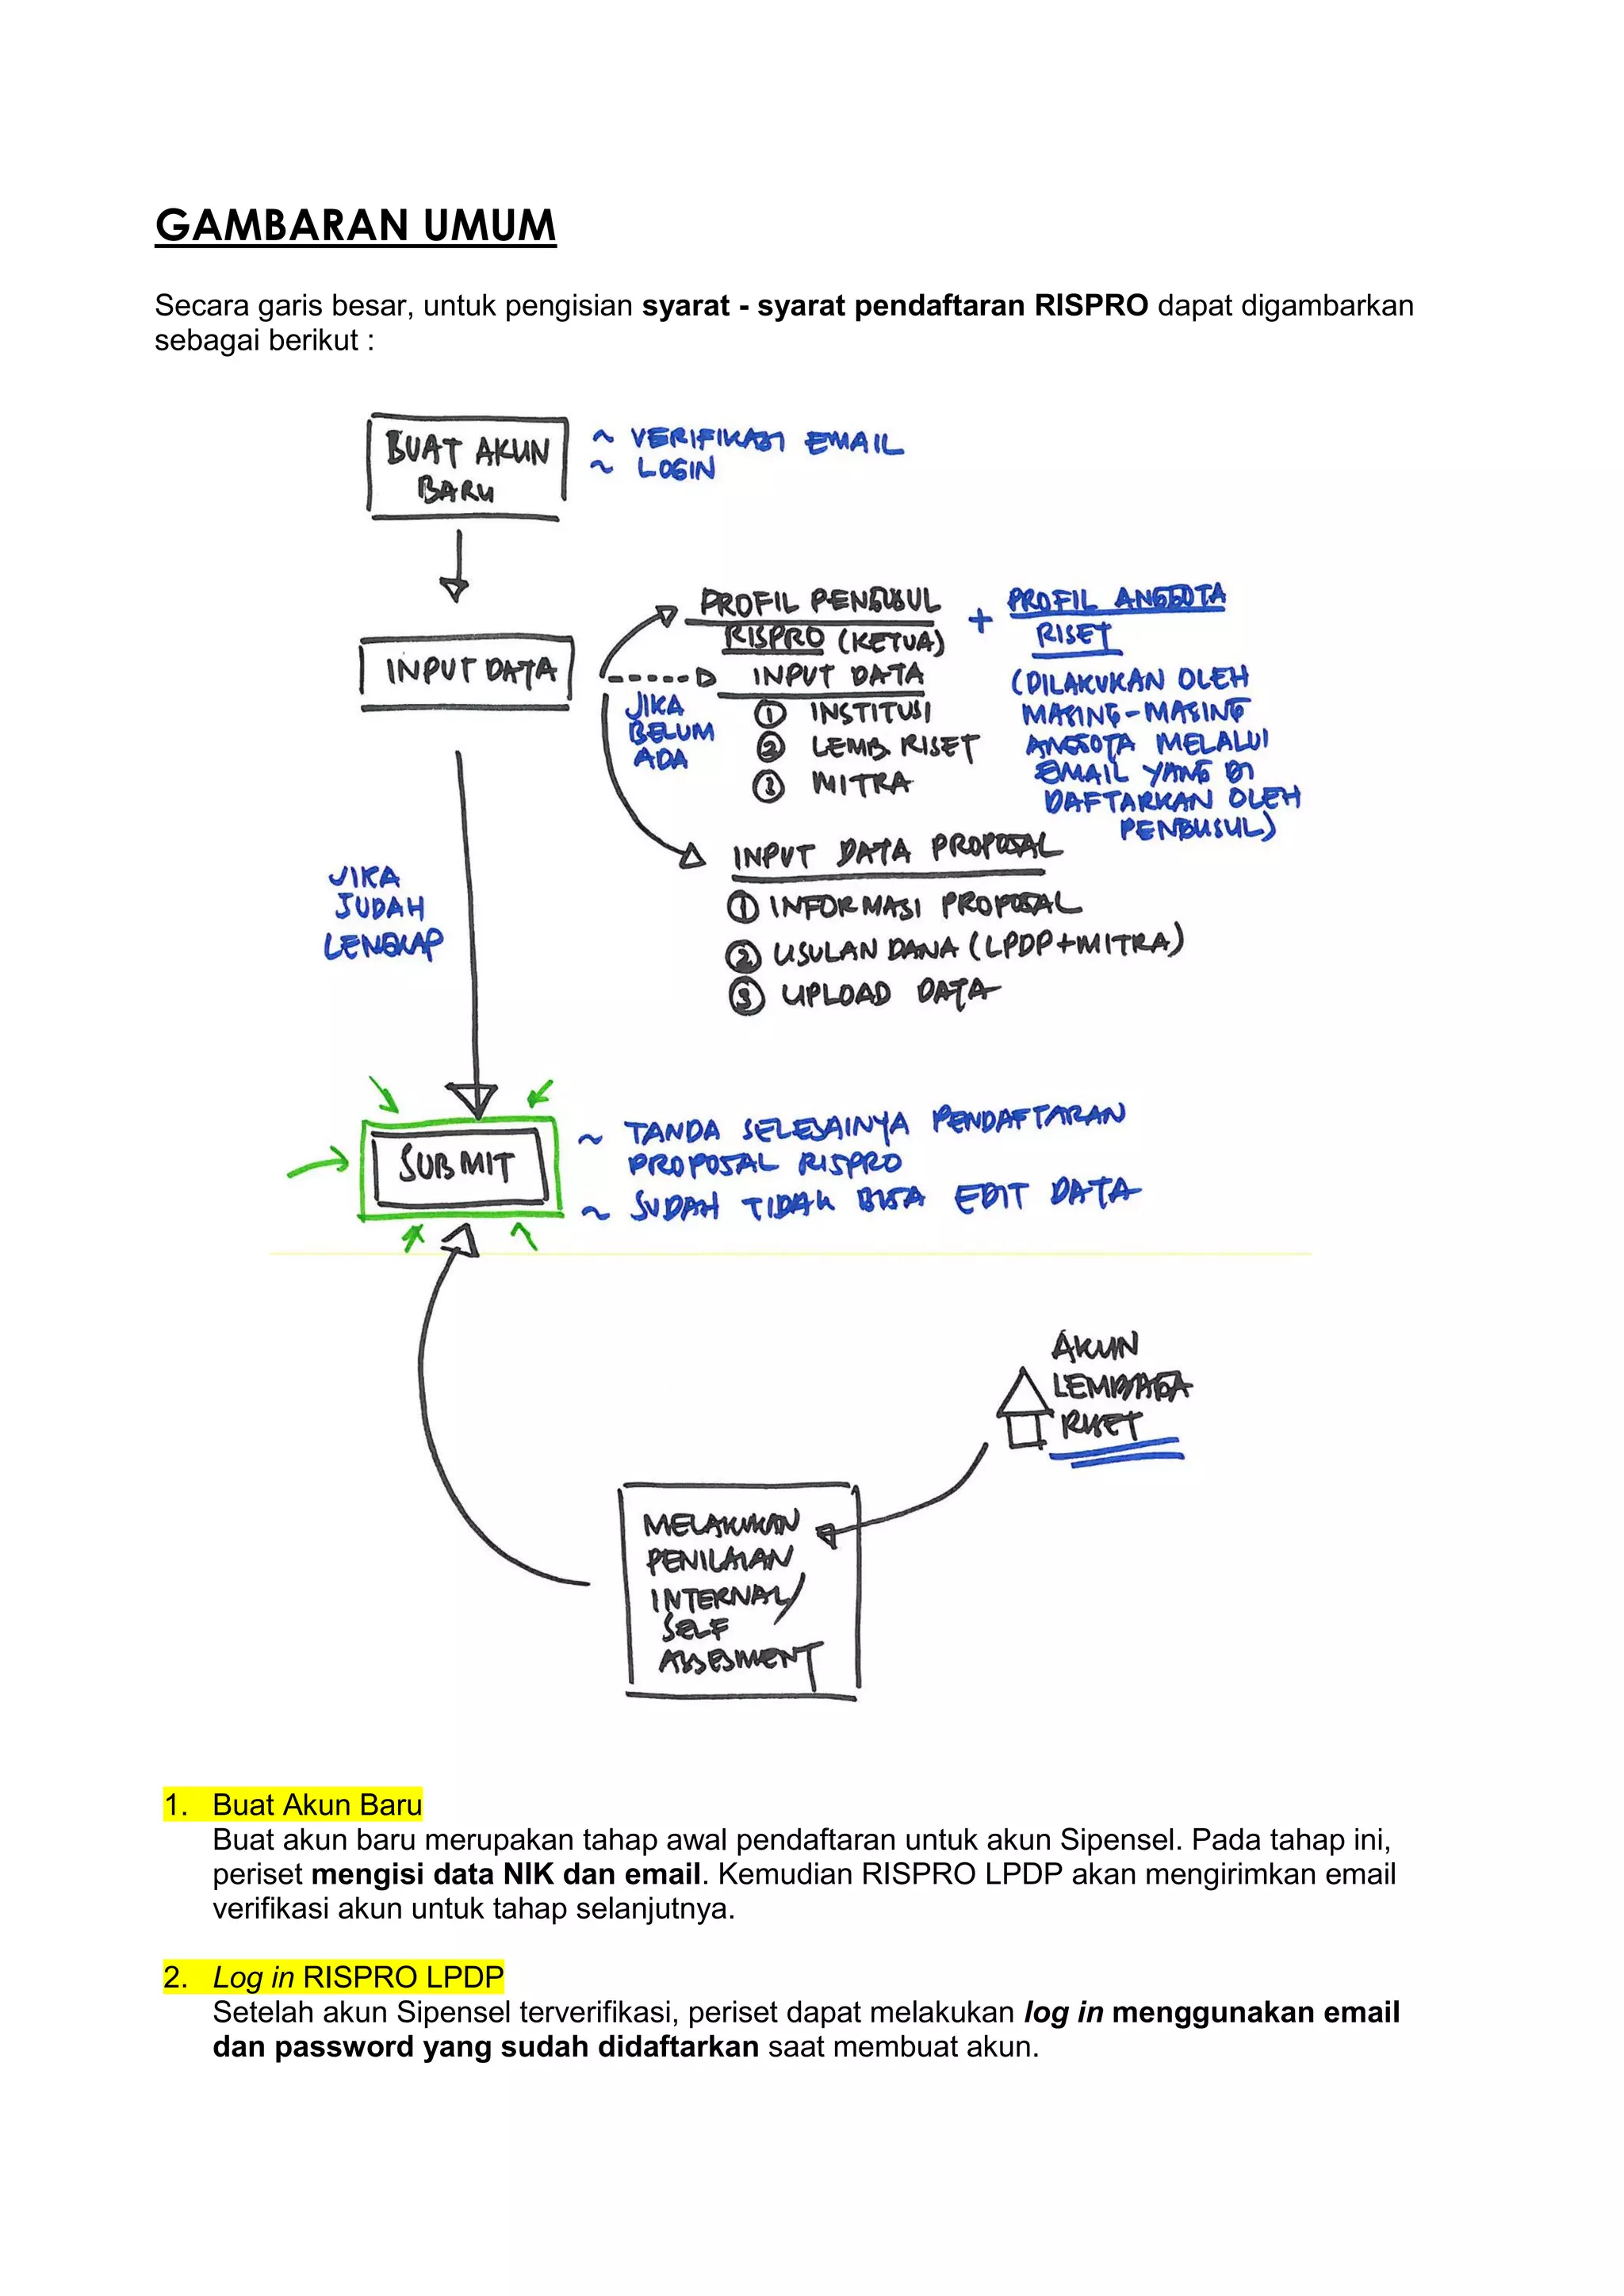 GAMBARAN UMUM
Secara garis besar, untuk pengisian syarat - syarat pendaftaran RISPRO dapat digambarkan
sebagai berikut :
BUAT AKUN
BARU
~ VERIFIKASI EMAIL
~ LOGIN
INPUT DATA
PROFIL PENGUSUL
RISPRO (KETUA)
+ PROFIL ANGGOTA
RISET
(DILAKUKAN OLEH
MASING-MASING
ANGGOTA MELALUI
EMAIL YANG DI
DAFTARKAN OLEH
PENGUSUL)
JIKA
BELUM
ADA
INPUT DATA
① INSTITUSI
② LEMB RISET
③ MITRA
INPUT DATA PROPOSAL
① INFORMASI PROPOSAL
② USULAN DANA (LPDP+MITRA)
③ UPLOAD DATA
JIKA
SUDAH
LENGKAP
SUBMIT
~ TANDA SELESAINYA PENDAFTARAN
PROPOSAL RISPRO
~ SUDAH TIDAK BISA EDIT DATA
AKUN
LEMBAGA
RISET
MELAKUKAN
PENILAIAN
INTERNAL/
SELF
ASSESMENT
1. Buat Akun Baru
Buat akun baru merupakan tahap awal pendaftaran untuk akun Sipensel. Pada tahap ini,
periset mengisi data NIK dan email. Kemudian RISPRO LPDP akan mengirimkan email
verifikasi akun untuk tahap selanjutnya.
2. Log in RISPRO LPDP
Setelah akun Sipensel terverifikasi, periset dapat melakukan log in menggunakan email
dan password yang sudah didaftarkan saat membuat akun.